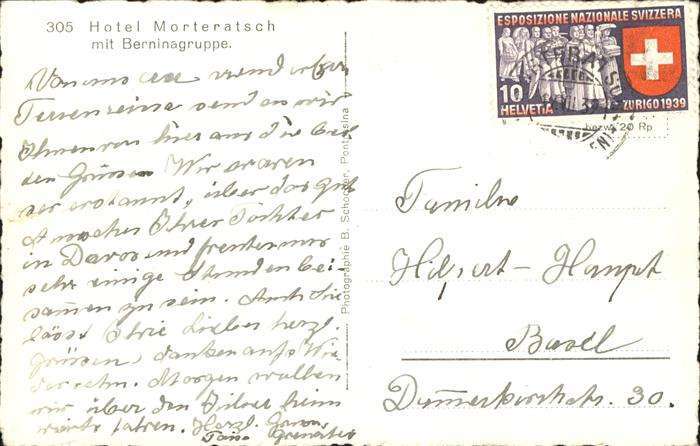 305 Hotel Morteratsch
mit Berninagruppe.
Von uns
senden wir
Ihnen von hier aus die bes
ten Grüssen Wir waren
sehr erstaunt, über das gut
Aussehen Ihrer Tochter
in Davos und freuten uns
sehr einige Stunden bei-
sammen zu sein. Auch Sie
lässt Ihre Lieben herzl.
grüssen, danken aufs Wie
dersehn. Morgen wollen
wir über den Julier heim
wärts fahren. Herzl. Grüsse
Photographie B. Schocher, Pontresina
ESPOSIZIONE NAZIONALE SVIZZERA
10
HELVETIA
ZURIGO 1939
bezw. 20 Rp
Familie
Hilpert-Haupt
Basel
Dammerkirchstr. 30.